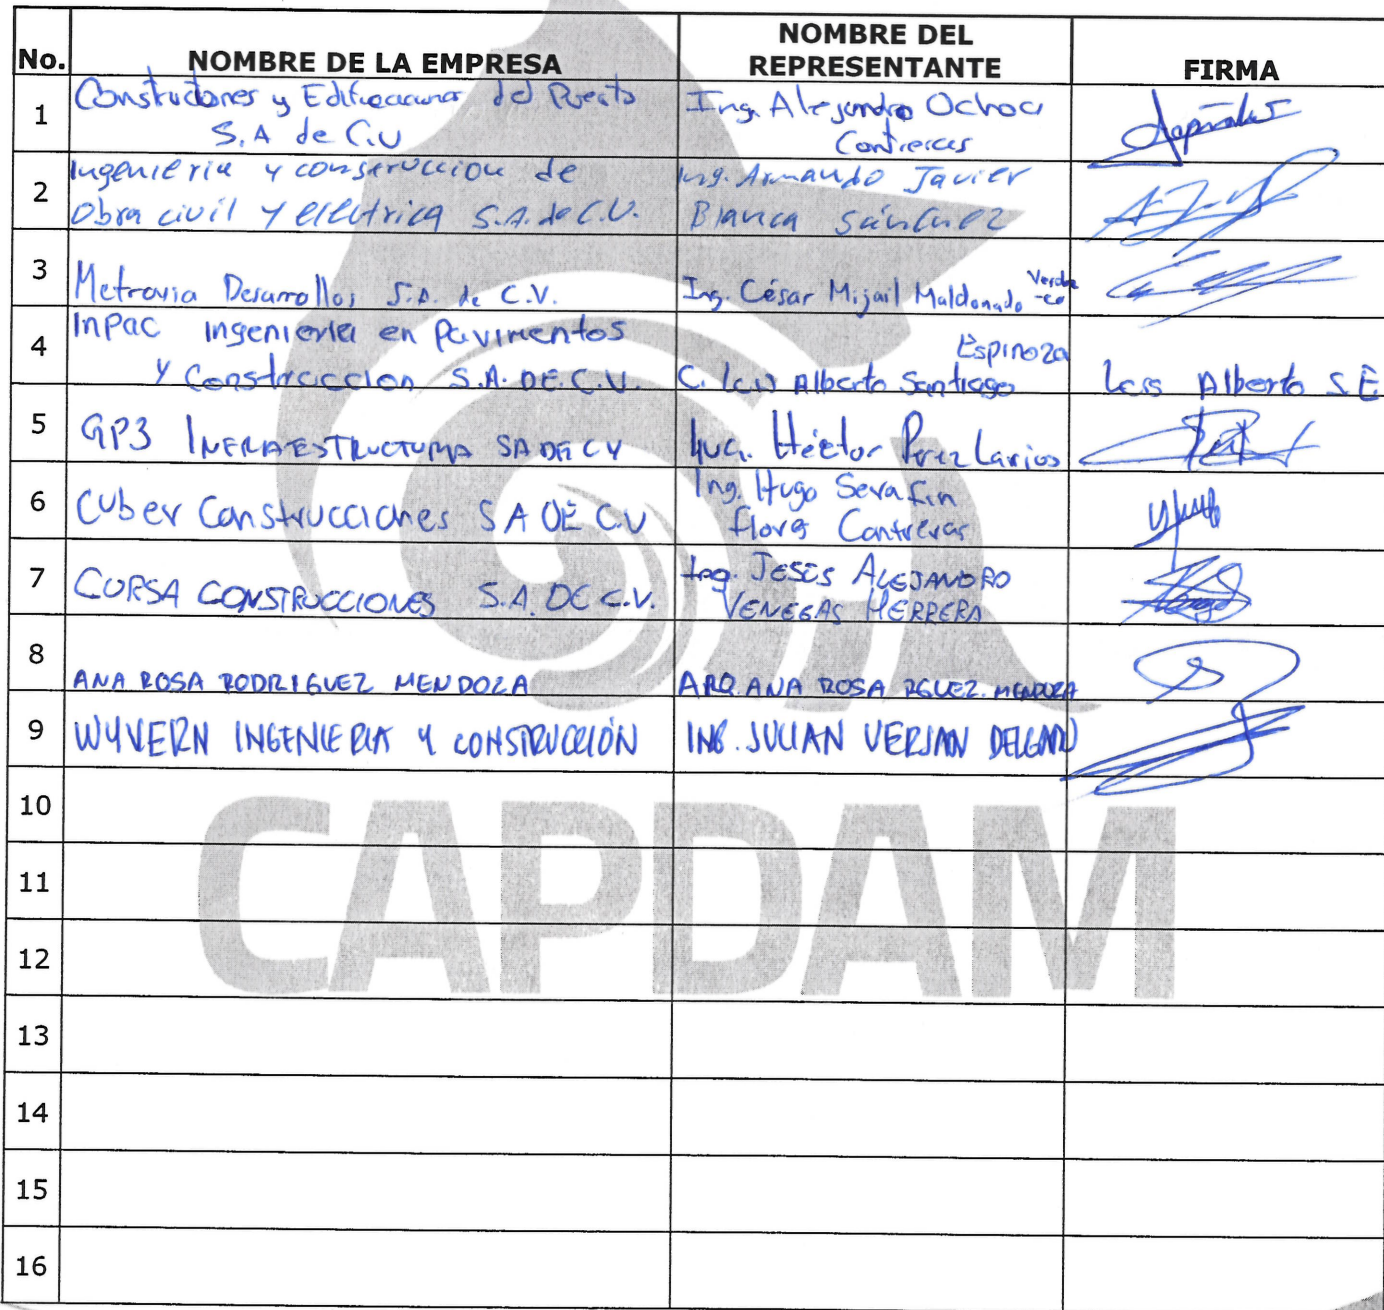 No. NOMBRE DE LA EMPRESA NOMBRE DEL REPRESENTANTE FIRMA
1 Construclones y Edificaciones del Puerto Ing. Alejandro Ochoa
S.A de C.V Contreras
2 Ingenieria y construccion de Ing. Armando Javier
Obra civil y electrica S.A. de C.V. Blanca Sánchez
3 Metrovia Desarrollos S.A. de C.V. Ing. César Mijail Maldonado Verdu
-co
4 InPac Ingenieria en Pavimentos Espinoza
y Construccion S.A. DE. C.V. C. Luis Alberto Santiago Luis Alberto S E
5 GP3 INFRAESTRUCTURA SA DE CV Ing. Héctor Perez Larios
6 Cuber Construcciones S A DE C.V Ing. Hugo Serafin
Flores Contreras
7 CORSA CONSTRUCCIONES S.A. DE C.V. Ing. JESÚS ALEJANDRO
VENEGAS HERRERA
8 ANA ROSA RODRIGUEZ MENDOZA ARQ. ANA ROSA RGUEZ. MENDOZA
9 WYVERN INGENIERIA Y CONSTRUCCIÓN ING. JULIAN VERJAN DELGADO
10
CAPDAM
11
12
13
14
15
16